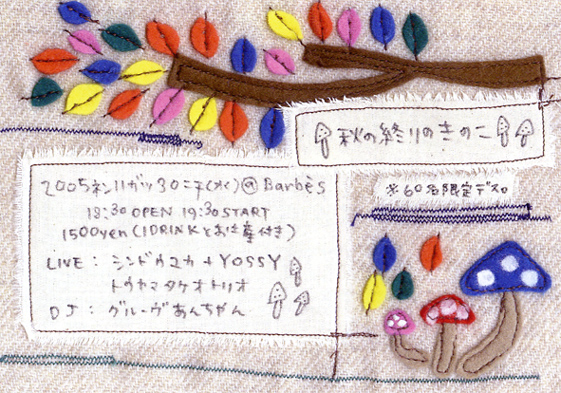 秋の終りのきのこ
2005ネン11ガツ30ニチ(水)@Barbès
18:30 OPEN 19:30 START
1500yen (1DRINKとお土産付き)
LIVE: シンドウユカ + YOSSY
トウヤマタケオトリオ
DJ: グルーヴあんちゃん
※60名限定デス。